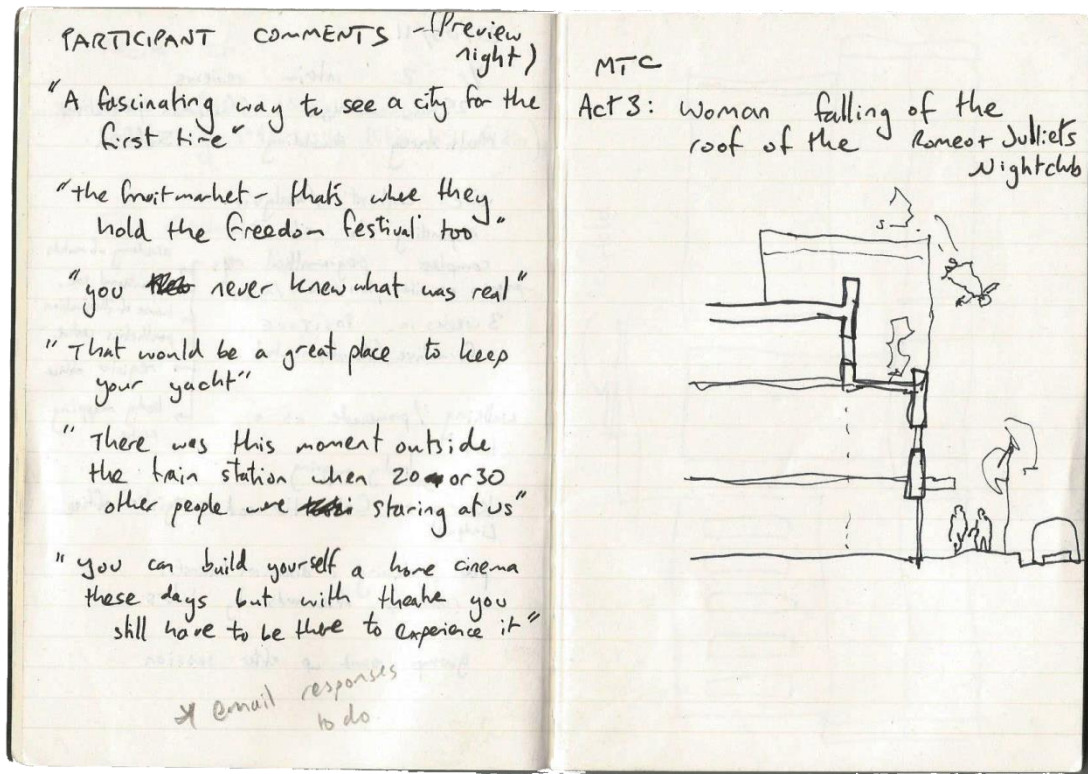 PARTICIPANT COMMENTS - (Preview
night)
"A fascinating way to see a city for the
first time"
"the fruitmarket - thats where they
hold the Freedom festival too"
"you never knew what was real"
"That would be a great place to keep
your yacht"
"There was this moment outside
the train station when 20 or 30
other people were staring at us"
"you can build yourself a home cinema
these days but with theatre you
still have to be there to experience it"
* email responses
to do
MTC
Act 3: woman falling of the
roof of the Romeo + Julliets
Nightclub